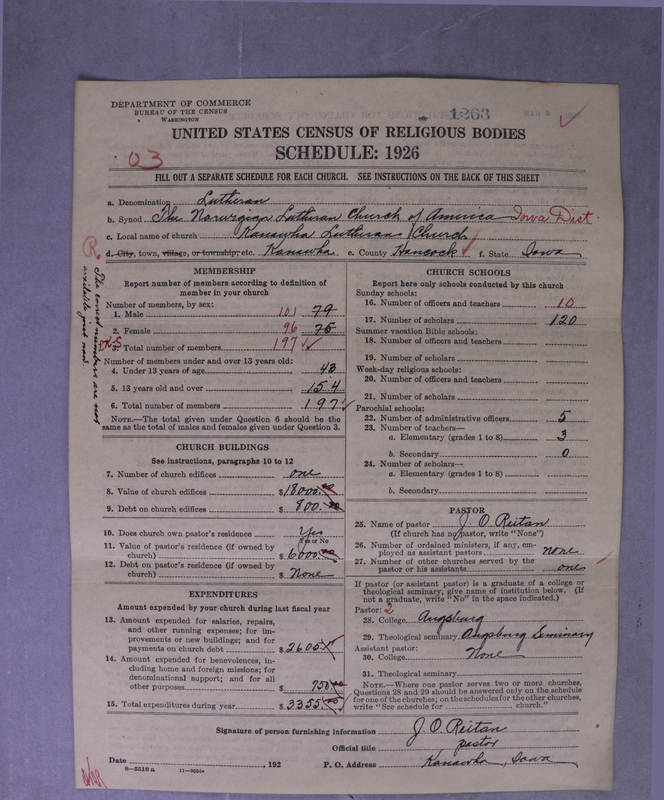 DEPARTMENT OF COMMERCE
BUREAU OF THE CENSUS
WASHINGTON
1263
UNITED STATES CENSUS OF RELIGIOUS BODIES
SCHEDULE: 1926
03
FILL OUT A SEPARATE SCHEDULE FOR EACH CHURCH. SEE INSTRUCTIONS ON THE BACK OF THIS SHEET
a. Denomination Lutheran
b. Synod The Norwegian Lutheran Church of America Iowa Dist
c. Local name of church Kanawha Lutheran Church
d. City, town, village, or township, etc. Kanawha e. County Hancock f. State Iowa
R
The correct numbers are not available just now.
MEMBERSHIP
Report number of members according to definition of member in your church
Number of members, by sex:
1. Male 101 79
2. Female 96 75
3. Total number of members. 197
Number of members under and over 13 years old:
4. Under 13 years of age 43
5. 13 years old and over 154
6. Total number of members 197
NOTE.—The total given under Question 6 should be the
same as the total of males and females given under Question 3.
CHURCH BUILDINGS
See instructions, paragraphs 10 to 12
7. Number of church edifices one
8. Value of church edifices $18000.00
9. Debt on church edifices $ 800.00
10. Does church own pastor's residence Yes
Yes or No
11. Value of pastor's residence (if owned by
church) $6000.00
12. Debt on pastor's residence (if owned by
church) $ None
EXPENDITURES
Amount expended by your church during last fiscal year
13. Amount expended for salaries, repairs,
and other running expenses; for im-
provements or new buildings; and for
payments on church debt $2605
14. Amount expended for benevolences, in-
cluding home and foreign missions; for
denominational support; and for all
other purposes $ 750.00
15. Total expenditures during year $3355.00
CHURCH SCHOOLS
Report here only schools conducted by this church
Sunday schools:
16. Number of officers and teachers 10
17. Number of scholars 120
Summer vacation Bible schools:
18. Number of officers and teachers
19. Number of scholars
Week-day religious schools:
20. Number of officers and teachers
21. Number of scholars
Parochial schools:
22. Number of administrative officers 5
23. Number of teachers—
a. Elementary (grades 1 to 8) 3
b. Secondary 0
24. Number of scholars—
a. Elementary (grades 1 to 8)
b. Secondary
PASTOR
25. Name of pastor J. O. Reitan
(If church has no pastor, write "None")
26. Number of ordained ministers, if any, em-
ployed as assistant pastors none
27. Number of other churches served by the
pastor or his assistants one
If pastor (or assistant pastor) is a graduate of a college or
theological seminary, give name of institution below. (If
not a graduate, write "No" in the space indicated.)
Pastor: 2
28. College Augsburg
29. Theological seminary Augsburg Seminary
Assistant pastor:
30. College None
31. Theological seminary
NOTE.—Where one pastor serves two or more churches,
Questions 28 and 29 should be answered only on the schedule
for one of the churches; on the schedules for the other churches,
write "See schedule for church."
Signature of person furnishing information J. O. Reitan
Official title pastor
Date , 192 P. O. Address Kanawha, Iowa
8—5518a 11—9034